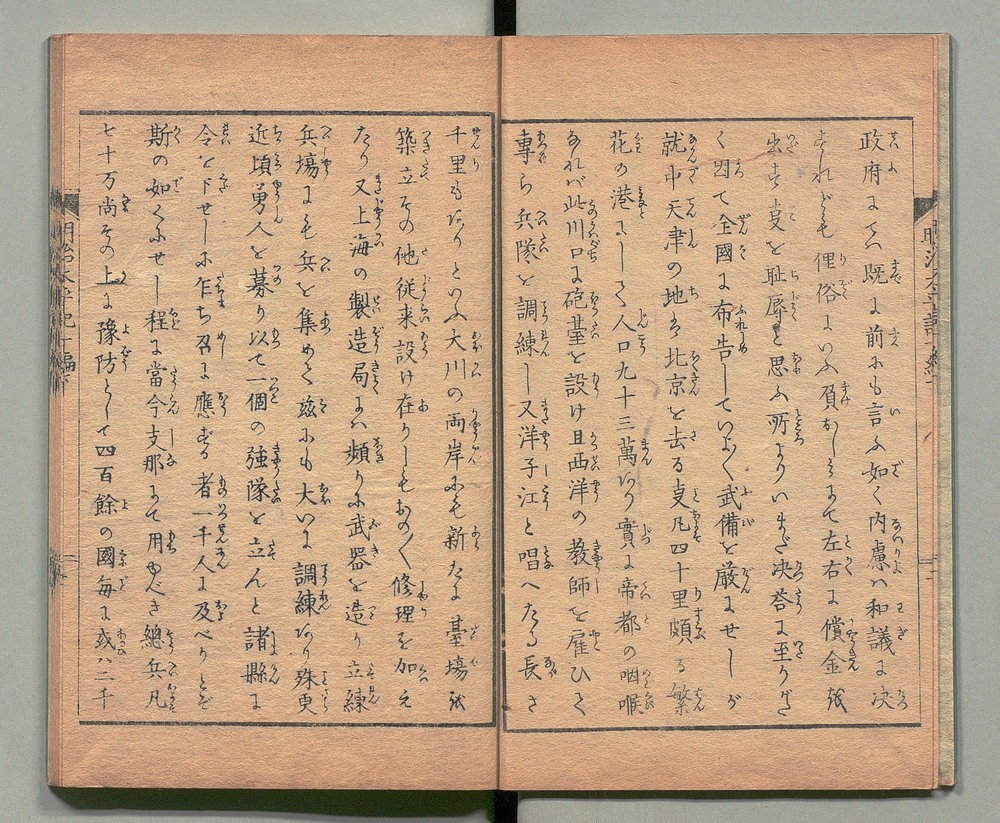 政府にてハ既に前にも言ふ如く内慮ハ和議に決
すれども俚俗にいふ負をしミにて左右に償金を
出す事を恥辱と思ふ所よりいまだ決答に至りがた
く因て全國に布告していよく武備を厳にせしが
就中天津の地は北京を去る事凡四十里頗る繁
花の港にして人口九十三萬あり實に帝都の咽喉
なれバ此川口に砲䑓を設け且西洋の教師を雇ひて
専ら兵隊を調練し又洋子江と唱へたる長さ
千里もありといふ大川の両岸にも新たに䑓場を
築立その他従来設け在りしもおのく修理を加え
たり又上海の製造局にハ頻りに武器を造り立練
兵塲にも兵を集めて茲にも大いに調練あり殊更
近頃勇人を募り以て一個の強隊を立んと諸縣に
令を下せしに乍ち召に應ずる者一千人に及べりとぞ
斯の如くにせし程に當今支那にて用ゆべき總兵凡
七十万尚その上に豫防として四百餘の國毎に或ハ二千
明治太平記十編下